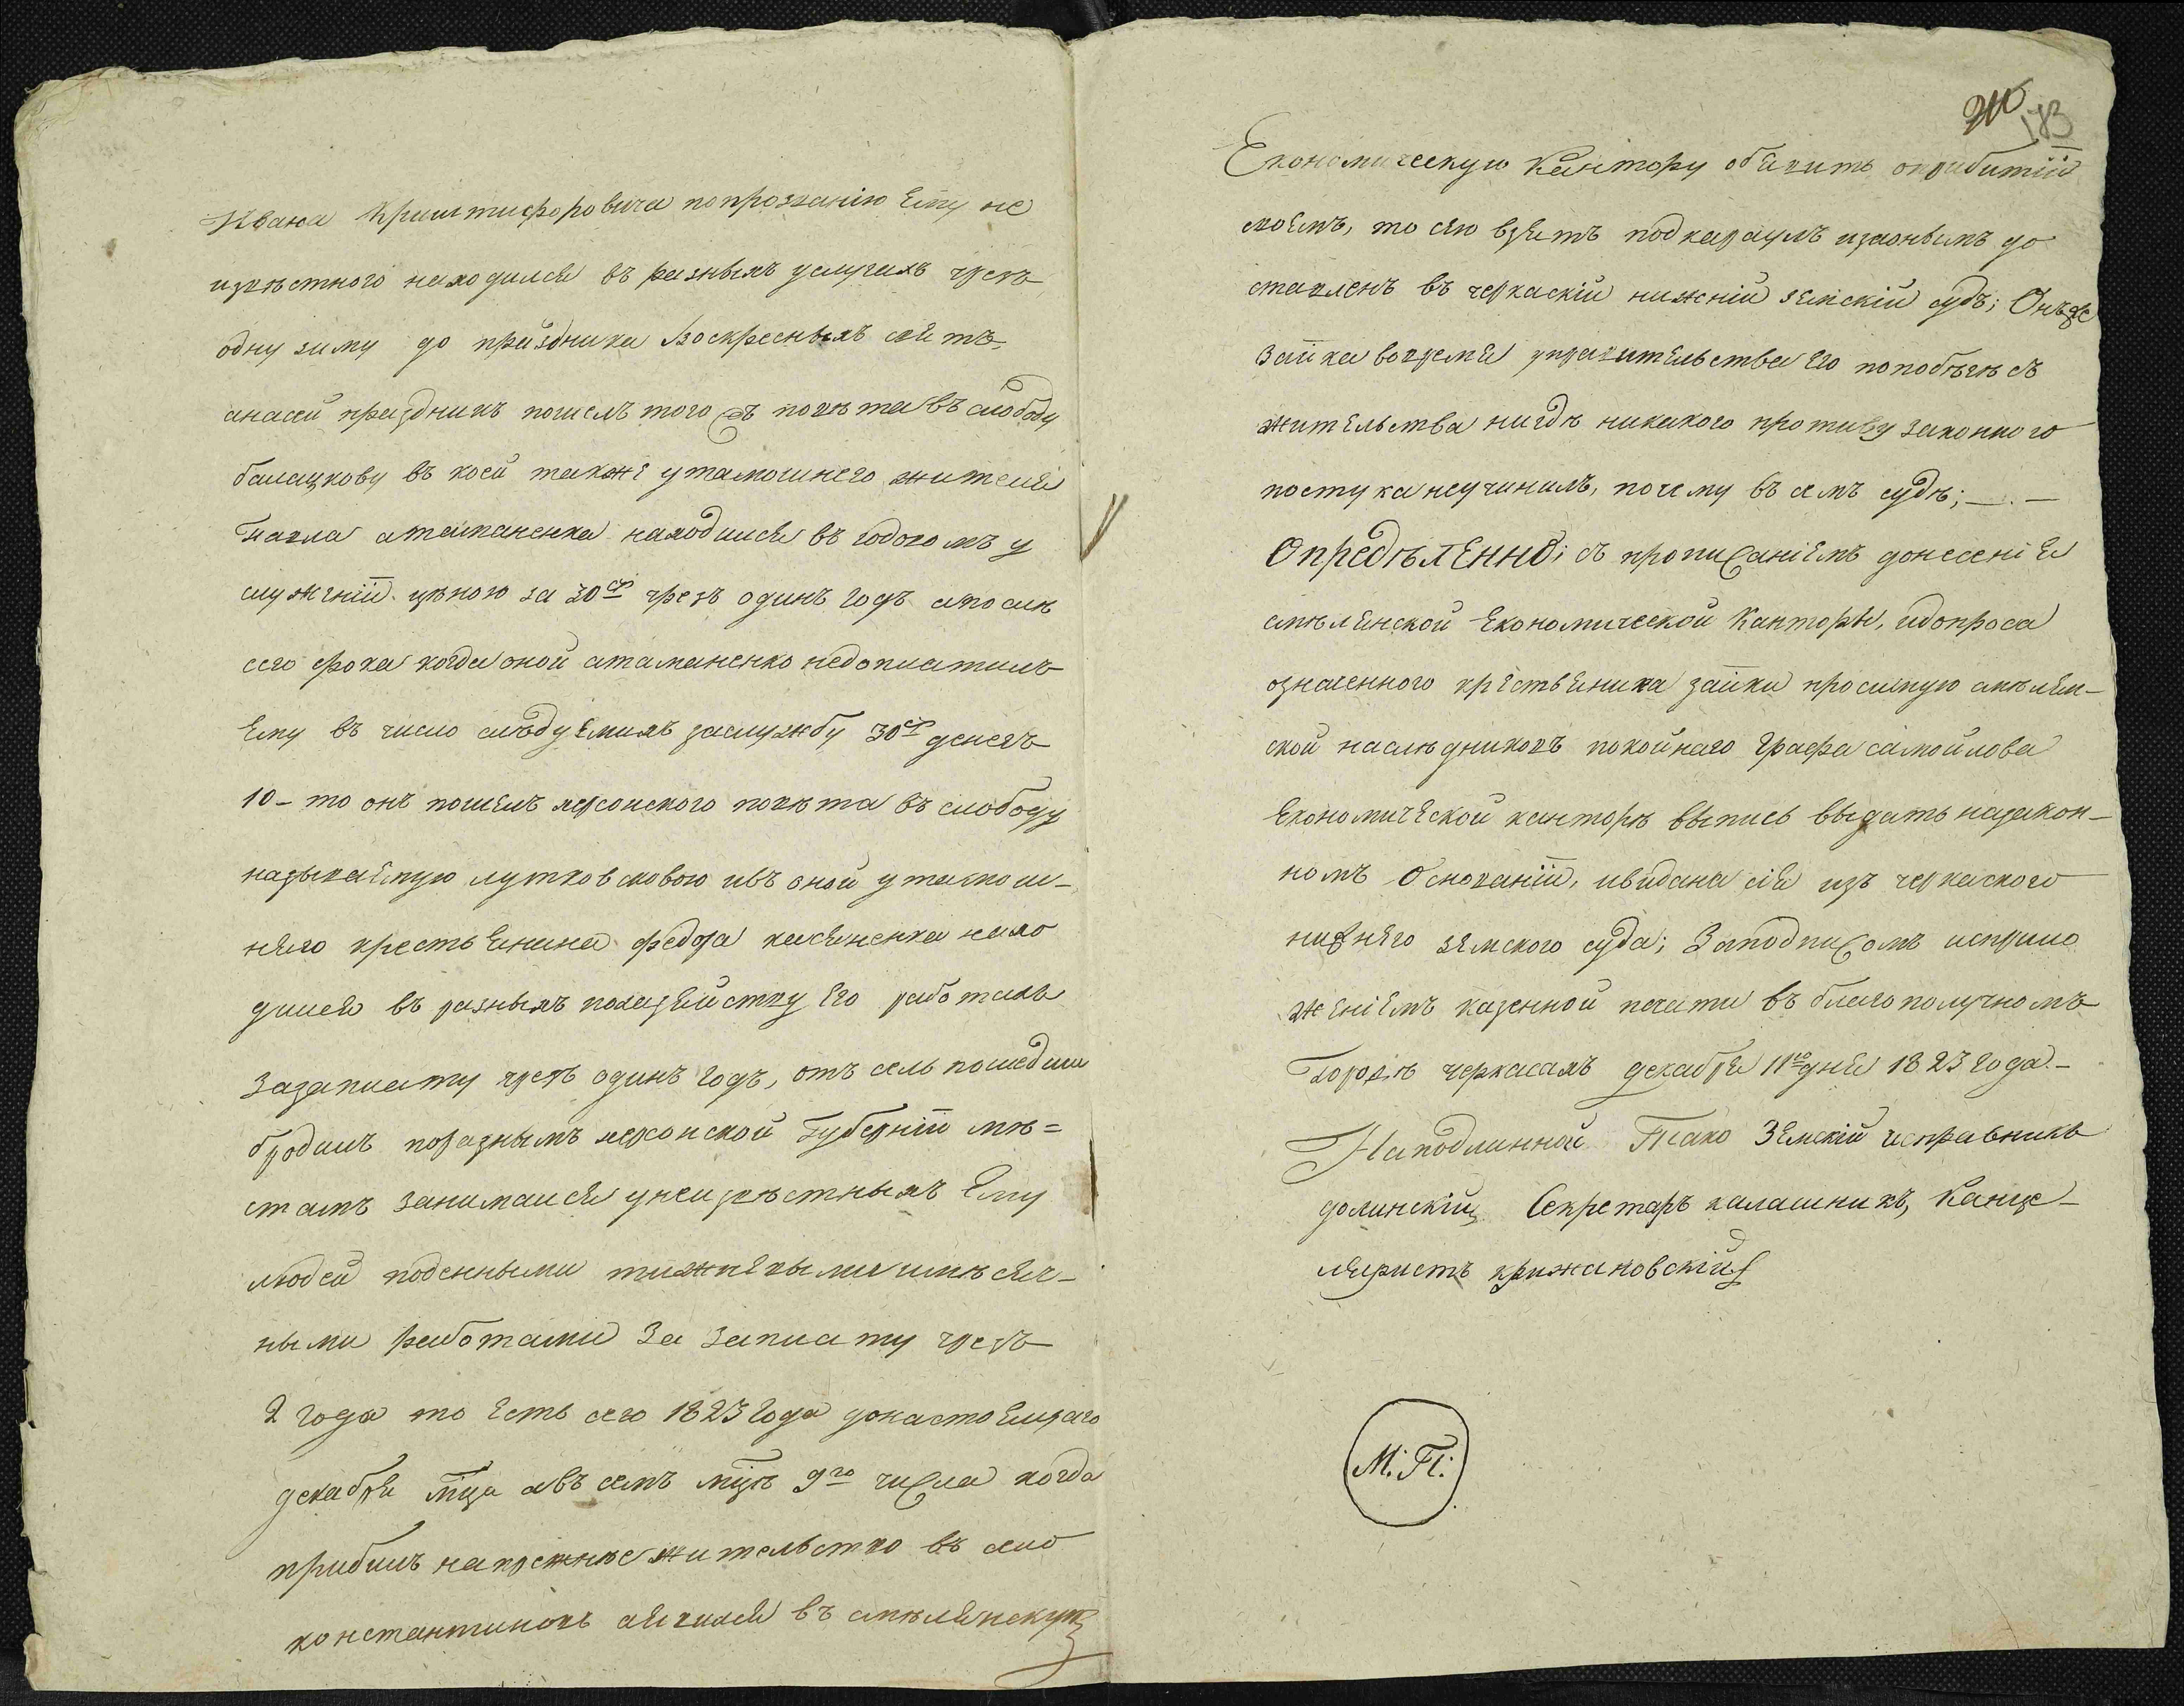 Ивана Криштифоровича попрозванію Ему не
извѣстного находился въ разныхъ услугахъ чрезъ
одну зиму до праздника Воскресныхъ святъ
анасей праздникъ пошелъ того жъ повѣта въ слободу
балацкову въ коей также утамошнего жителя
Павла атаманенка находился въ годовомъ у
служеніи цѣною за 30 ср чрезъ одинъ годъ апослѣ
сего срока когда оной атаманенко недоплатилъ
Ему въ число слѣдуемихъ заслужбу 30 ср денегъ
10 - то онъ пошелъ херсонского повѣта въ слободу
называемую луткові ивъ оной утамош-
няго крестьянина федора касяненка нахо
дился въ разныхъ похазяйству Его работахъ
Зазаплату чрезъ одинъ годъ, отъ сель пошедши
бродилъ поразнымъ херсонской Губерніи мѣ=
стамъ занимался унеизвѣстныхъ Ему
людей поденными тижнёвыми имѣсяч-
ными работами За Заплату чрезъ
2 года то Есть сего 1823 года донастоящаго
декабря мца авъ семъ мцѣ 9го числа когда
прибилъ напрежнѣе жительство въ село
константиновъ явился въ смѣлянскую
210
173
Економическую Кантору обявить оприбитіи
своемъ, то ею взятъ подкараулъ изаонымъ до
ставленъ въ черкаскій нижній земскій судъ; Онъже
Заика вовремя укрывательства Его попобѣгѣ съ
жительства нигдѣ никакого противу законного
поступка неучинилъ, почему въ семъ судѣ; —.—
Опредѣленно; съ прописаніемъ донесенія
смѣлянской Економической Канторы, идопроса
означенного крестьяника заики просимую смѣлян-
ской наслѣдниковъ покойнаго Графа самойлова
Економической канторѣ выпись выдать назакон-
номъ Основаніи, ивидана сія изъ черкаского
нижнего земского суда; Заподписомъ исприло
женіемъ казенной печати въ благополучномъ
Городѣ черкасахъ декабря 11го дня 1823 года. -
Наподлинной Тако Земскій исправникъ
долинскій, Секретарь калашникъ, Канце-
ляристъ крижановскій
М: П: